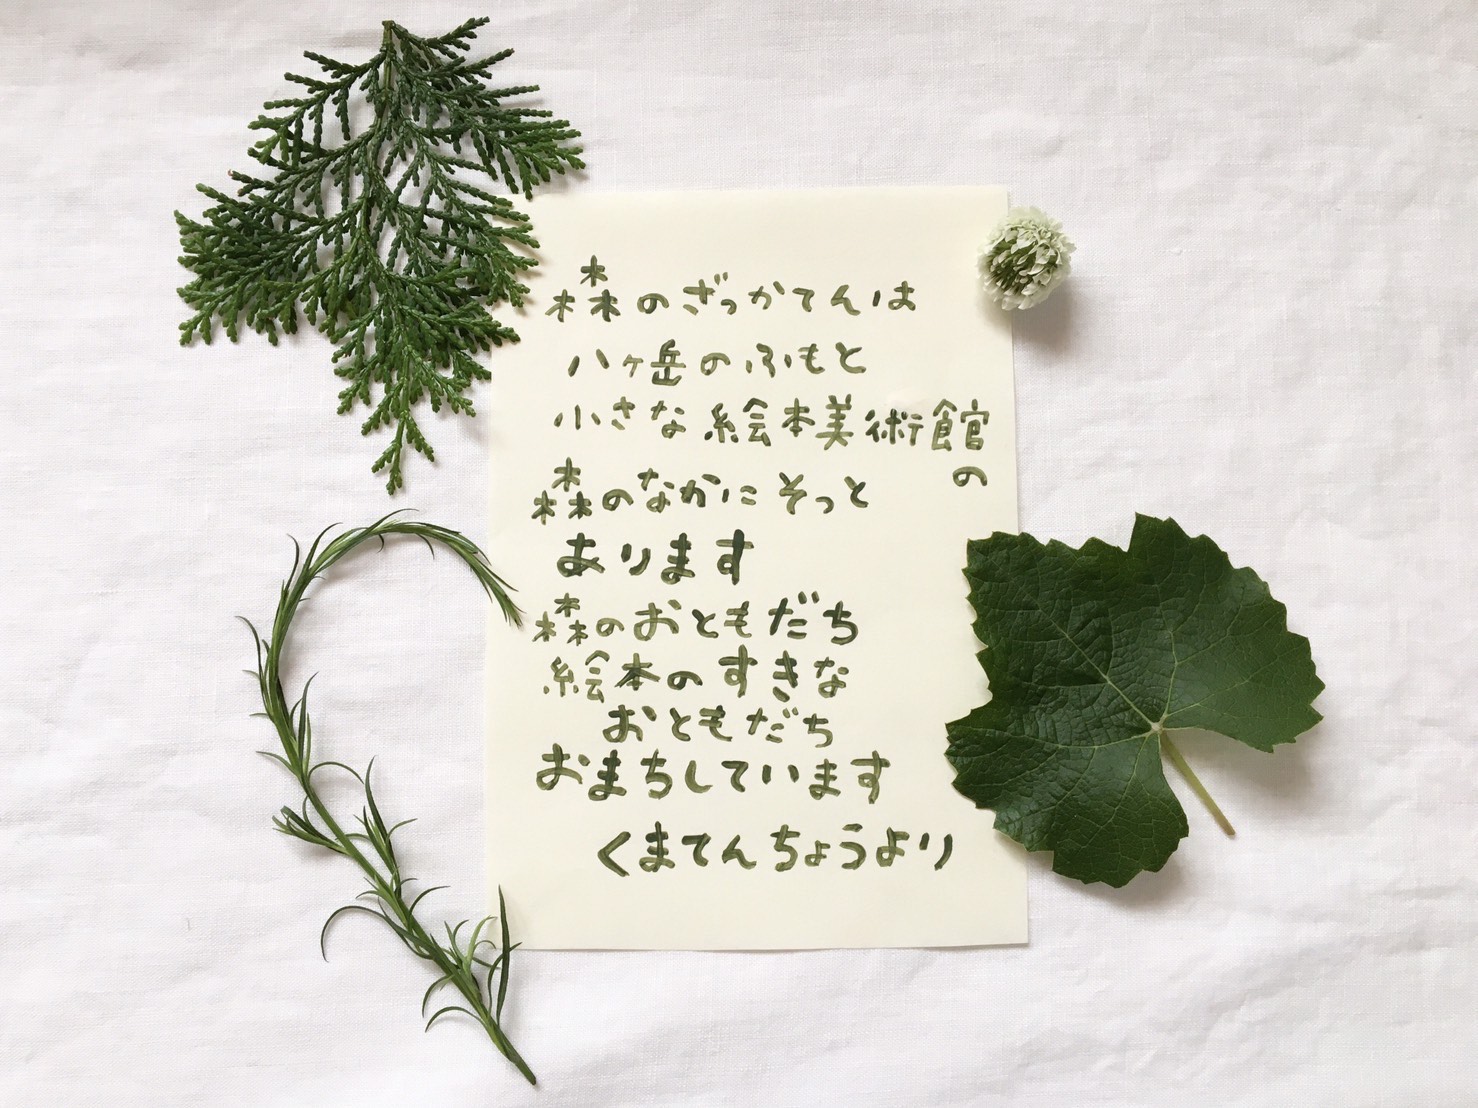 森のざっかてんは
八ヶ岳のふもと
小さな絵本美術館の
森のなかにそっと
あります
森のおともだち
絵本のすきな
おともだち
おまちしています
くまてんちょうより